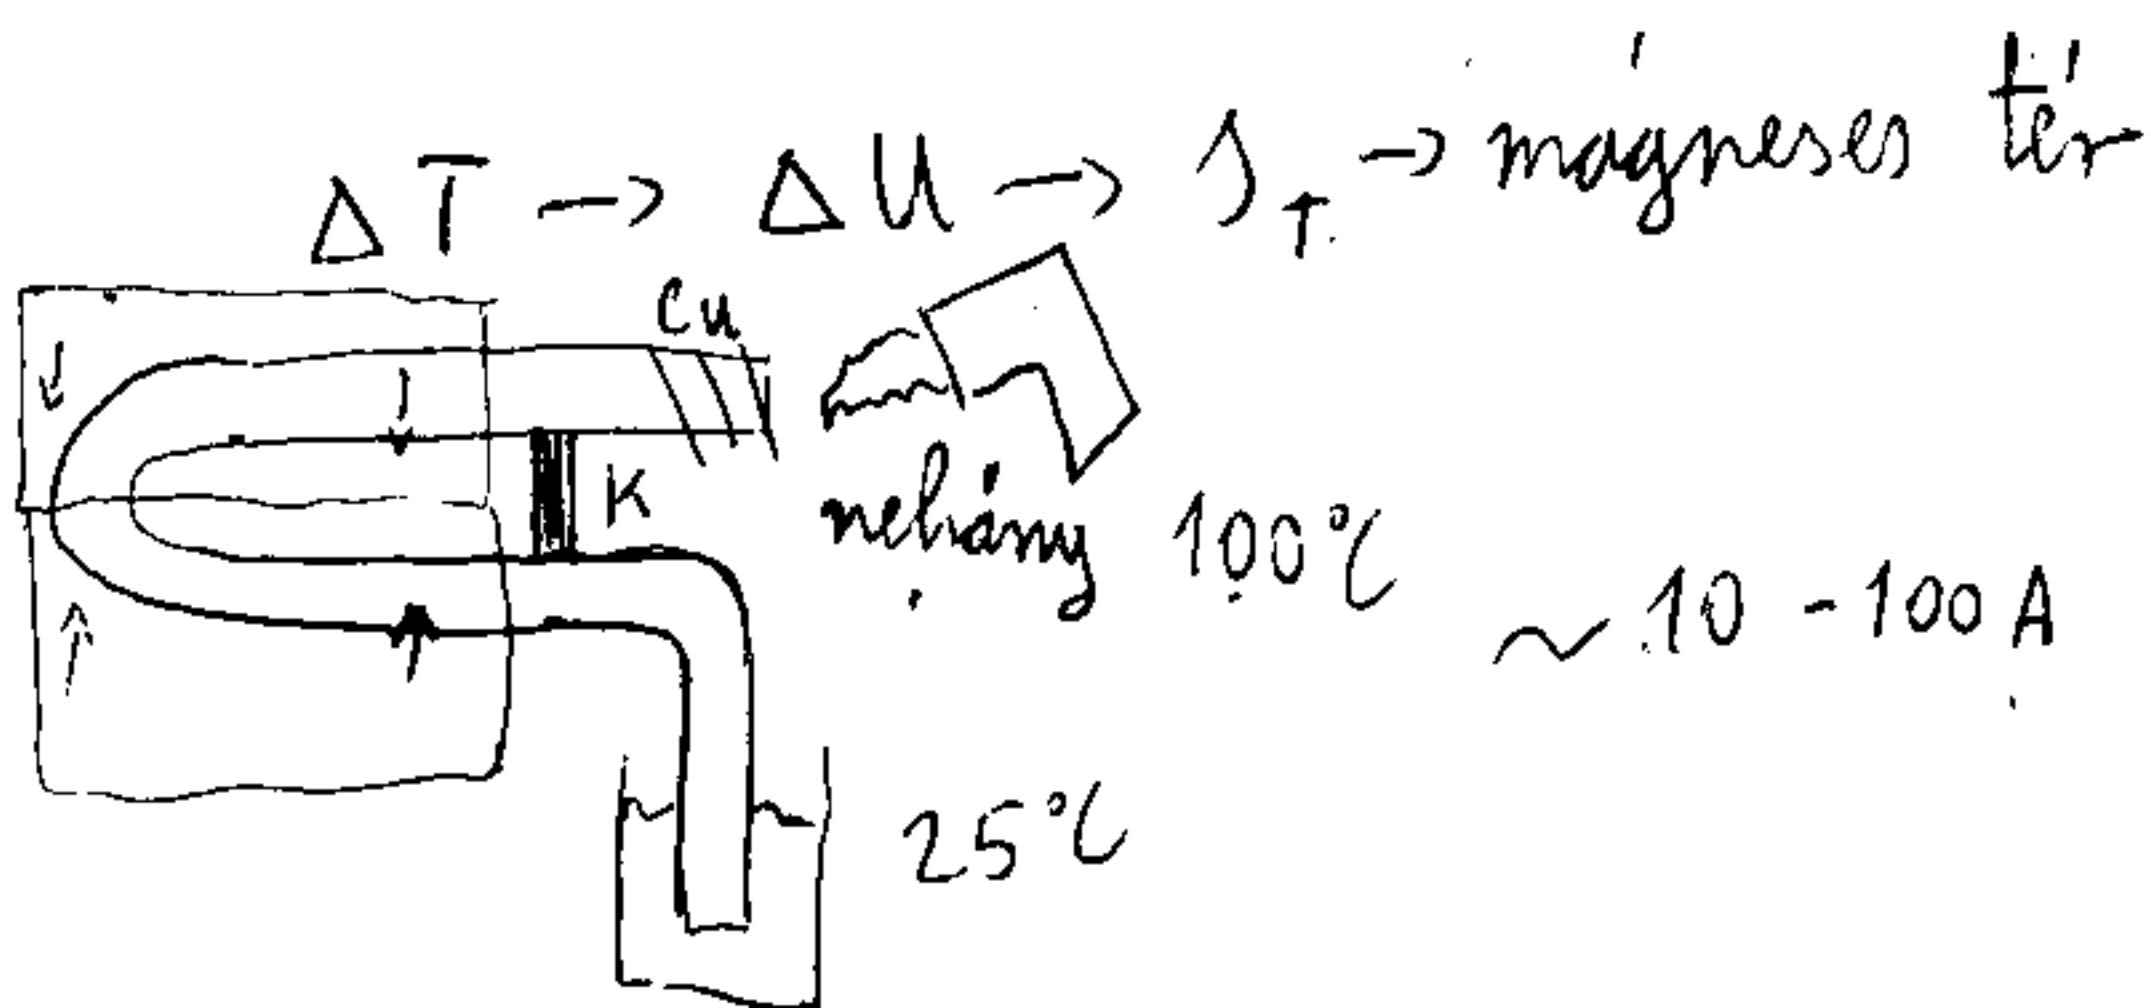 ΔT → ΔU → I_T → mágneses tér
Cu
K
néhány 100°C
~ 10 - 100 A
25°C